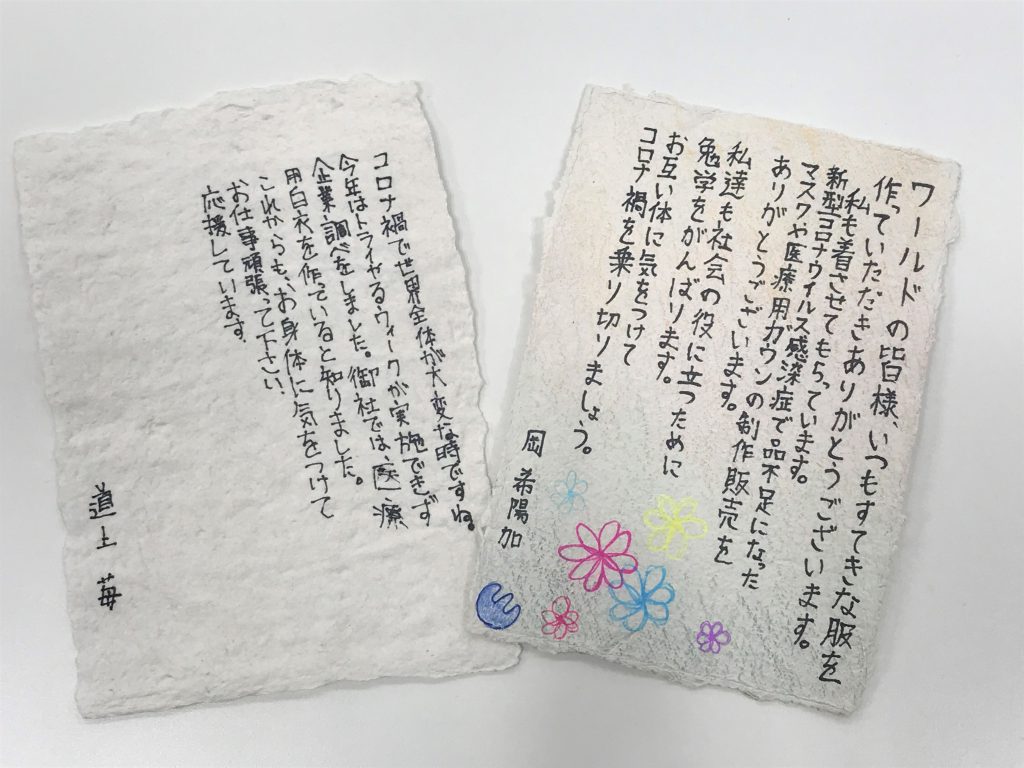 コロナ禍で世界全体が大変な時ですね。
今年はトライやるウィークが実施できず
企業調べをしました。御社では、医療
用白衣を作っていると知りました。
これからも、お身体に気をつけて
お仕事頑張って下さい。
応援しています。
道上 苺
ワールドの皆様、いつもすてきな服を
作っていただきありがとうございます。
私も着させてもらっています。
新型コロナウイルス感染症で品不足になった
マスクや医療用ガウンの制作販売を
ありがとうございます。
私達も社会の役に立つために
勉学をがんばります。
お互い体に気をつけて
コロナ禍を乗り切りましょう。
岡 希陽加